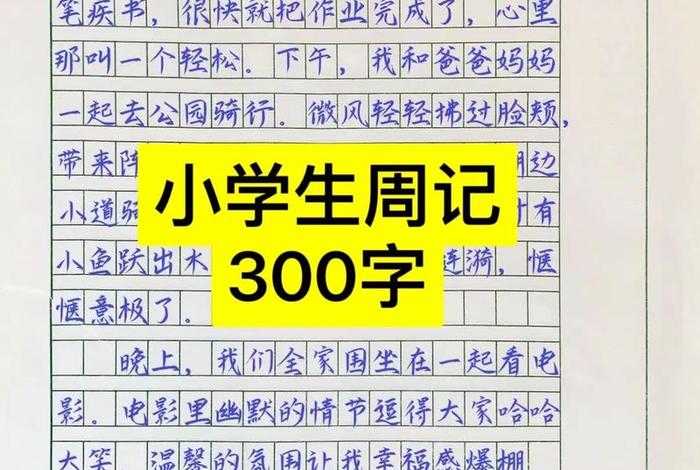 笔疾书，很快就把作业完成了，心里
那叫一个轻松．下午，我和爸爸妈妈
一起去公园骑行．微风轻轻拂过脸颊，
带来阵 边
小学生周记
小道骑 有
300字
小鱼跃出水 涟漪，惬
惬意极了．
晚上，我们全家围坐在一起看电
影．电影里幽默的情节逗得大家哈哈
大笑 温馨的氛围让我幸福感爆棚